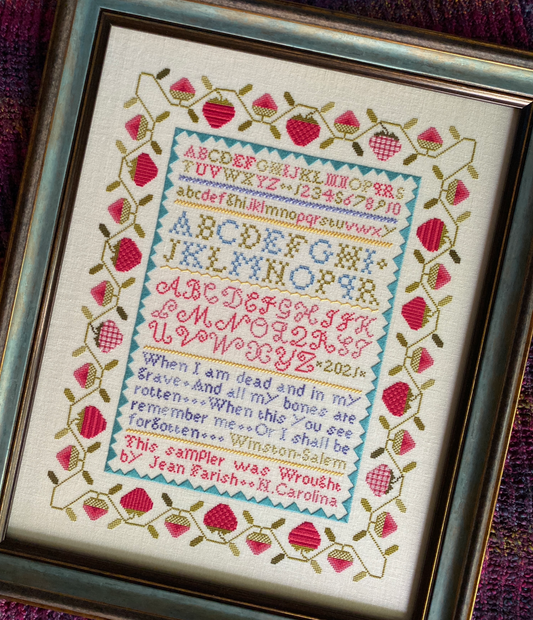 ABCDEFGHIJKLMNOPQRS
TUVWXYZ 12345678910
abcdefghijklmnopqrstuvwxy
ABCDEFGHI
JKLMNOPQR
ABCDEFGHIJK
LMNOPQRST
UVWXYZ 2021
When I am dead and in my
grave And all my bones are
rotten When this you see
remember me Or I shall be
forgotten Winston-Salem
This sampler was Wrought
by Jean Farish N. Carolina